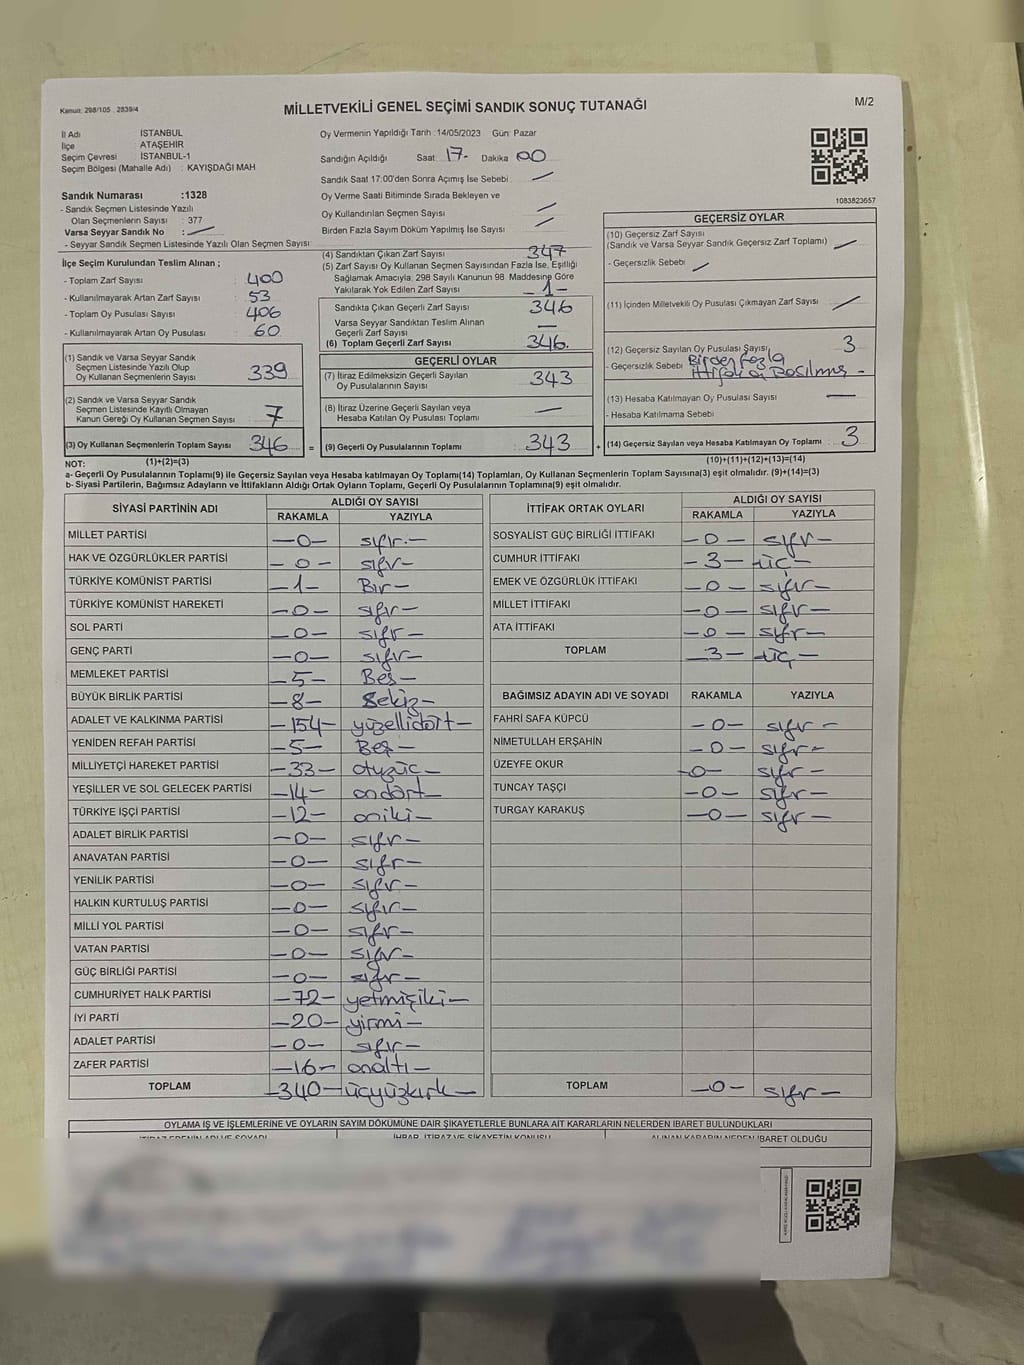 Kanun: 298/105 . 2839/4
MİLLETVEKİLİ GENEL SEÇİMİ SANDIK SONUÇ TUTANAĞI
M/2
İl Adı : İSTANBUL
İlçe : ATAŞEHİR
Seçim Çevresi : İSTANBUL-1
Seçim Bölgesi (Mahalle Adı) : KAYIŞDAĞI MAH
Sandık Numarası :1328
- Sandık Seçmen Listesinde Yazılı
Olan Seçmenlerin Sayısı : 377
Varsa Seyyar Sandık No : —
- Seyyar Sandık Seçmen Listesinde Yazılı Olan Seçmen Sayısı
Oy Vermenin Yapıldığı Tarih :14/05/2023 Gün: Pazar
Sandığın Açıldığı Saat 17- Dakika 00
Sandık Saat 17:00'den Sonra Açımış İse Sebebi : —
Oy Verme Saati Bitiminde Sırada Bekleyen ve
Oy Kullandırılan Seçmen Sayısı —
Birden Fazla Sayım Döküm Yapılmış İse Sayısı —
1083823657
İlçe Seçim Kurulundan Teslim Alınan ;
- Toplam Zarf Sayısı : 400
- Kullanılmayarak Artan Zarf Sayısı : 53
- Toplam Oy Pusulası Sayısı : 406
- Kullanılmayarak Artan Oy Pusulası : 60
(1) Sandık ve Varsa Seyyar Sandık
Seçmen Listesinde Yazılı Olup
Oy Kullanan Seçmenlerin Sayısı : 339
(2) Sandık ve Varsa Seyyar Sandık
Seçmen Listesinde Kayıtlı Olmayan
Kanun Gereği Oy Kullanan Seçmen Sayısı : 7
(3) Oy Kullanan Seçmenlerin Toplam Sayısı : 346 =
(4) Sandıktan Çıkan Zarf Sayısı : 347
(5) Zarf Sayısı Oy Kullanan Seçmen Sayısından Fazla İse, Eşitliği
Sağlamak Amacıyla; 298 Sayılı Kanunun 98. Maddesine Göre
Yakılarak Yok Edilen Zarf Sayısı : -1-
Sandıkta Çıkan Geçerli Zarf Sayısı : 346
Varsa Seyyar Sandıktan Teslim Alınan
Geçerli Zarf Sayısı : —
(6) Toplam Geçerli Zarf Sayısı : 346.
GEÇERLİ OYLAR
(7) İtiraz Edilmeksizin Geçerli Sayılan
Oy Pusulalarının Sayısı : 343
(8) İtiraz Üzerine Geçerli Sayılan veya
Hesaba Katılan Oy Pusulası Toplamı : —
(9) Geçerli Oy Pusulalarının Toplamı : 343 +
GEÇERSİZ OYLAR
(10) Geçersiz Zarf Sayısı
(Sandık ve Varsa Seyyar Sandık Geçersiz Zarf Toplamı) : —
- Geçersizlik Sebebi : —
(11) İçinden Milletvekili Oy Pusulası Çıkmayan Zarf Sayısı : —
(12) Geçersiz Sayılan Oy Pusulası Sayısı : 3
- Geçersizlik Sebebi : Birden fazla
ittifaka Basılmış -
(13) Hesaba Katılmayan Oy Pusulası Sayısı : —
- Hesaba Katılmama Sebebi :
(14) Geçersiz Sayılan veya Hesaba Katılmayan Oy Toplamı : 3
NOT: (1)+(2)=(3) (10)+(11)+(12)+(13)=(14)
a- Geçerli Oy Pusulalarının Toplamı(9) ile Geçersiz Sayılan veya Hesaba katılmayan Oy Toplamı(14) Toplamları, Oy Kullanan Seçmenlerin Toplam Sayısına(3) eşit olmalıdır. (9)+(14)=(3)
b- Siyasi Partilerin, Bağımsız Adayların ve İttifakların Aldığı Ortak Oyların Toplamı, Geçerli Oy Pusulalarının Toplamına(9) eşit olmalıdır.
SİYASİ PARTİNİN ADI ALDIĞI OY SAYISI
RAKAMLA YAZIYLA
MİLLET PARTİSİ -0- sıfır.-
HAK VE ÖZGÜRLÜKLER PARTİSİ -0- sıfır-
TÜRKİYE KOMÜNİST PARTİSİ -1- Bir-
TÜRKİYE KOMÜNİST HAREKETİ -0- sıfır-
SOL PARTİ -0- sıfır-
GENÇ PARTİ -0- sıfır-
MEMLEKET PARTİSİ -5- Beş-
BÜYÜK BİRLİK PARTİSİ -8- Sekiz-
ADALET VE KALKINMA PARTİSİ -154- yüzellidört-
YENİDEN REFAH PARTİSİ -5- Beş-
MİLLİYETÇİ HAREKET PARTİSİ -33- otuzüç-
YEŞİLLER VE SOL GELECEK PARTİSİ -14- ondört-
TÜRKİYE İŞÇİ PARTİSİ -12- oniki-
ADALET BİRLİK PARTİSİ -0- sıfır-
ANAVATAN PARTİSİ -0- sıfır-
YENİLİK PARTİSİ -0- sıfır-
HALKIN KURTULUŞ PARTİSİ -0- sıfır-
MİLLİ YOL PARTİSİ -0- sıfır-
VATAN PARTİSİ -0- sıfır-
GÜÇ BİRLİĞİ PARTİSİ -0- sıfır-
CUMHURİYET HALK PARTİSİ -72- yetmişiki-
İYİ PARTİ -20- yirmi-
ADALET PARTİSİ -0- sıfır-
ZAFER PARTİSİ -16- onaltı-
TOPLAM -340- üçyüzkırk-
İTTİFAK ORTAK OYLARI ALDIĞI OY SAYISI
RAKAMLA YAZIYLA
SOSYALİST GÜÇ BİRLİĞİ İTTİFAKI -0- sıfır-
CUMHUR İTTİFAKI -3- üç-
EMEK VE ÖZGÜRLÜK İTTİFAKI -0- sıfır-
MİLLET İTTİFAKI -0- sıfır-
ATA İTTİFAKI -0- sıfır-
TOPLAM -3- üç-
BAĞIMSIZ ADAYIN ADI VE SOYADI RAKAMLA YAZIYLA
FAHRİ SAFA KÜPCÜ -0- sıfır-
NİMETULLAH ERŞAHİN -0- sıfır-
ÜZEYFE OKUR -0- sıfır-
TUNCAY TAŞÇI -0- sıfır-
TURGAY KARAKUŞ -0- sıfır-
TOPLAM -0- sıfır-
OYLAMA İŞ VE İŞLEMLERİNE VE OYLARIN SAYIM DÖKÜMÜNE DAİR ŞİKAYETLERLE BUNLARA AİT KARARLARIN NELERDEN İBARET BULUNDUKLARI
İTİRAZ EDENİN ADI VE SOYADI İHBAR, İTİRAZ VE ŞİKAYETİN KONUSU ALINAN KARARIN NEDEN İBARET OLDUĞU